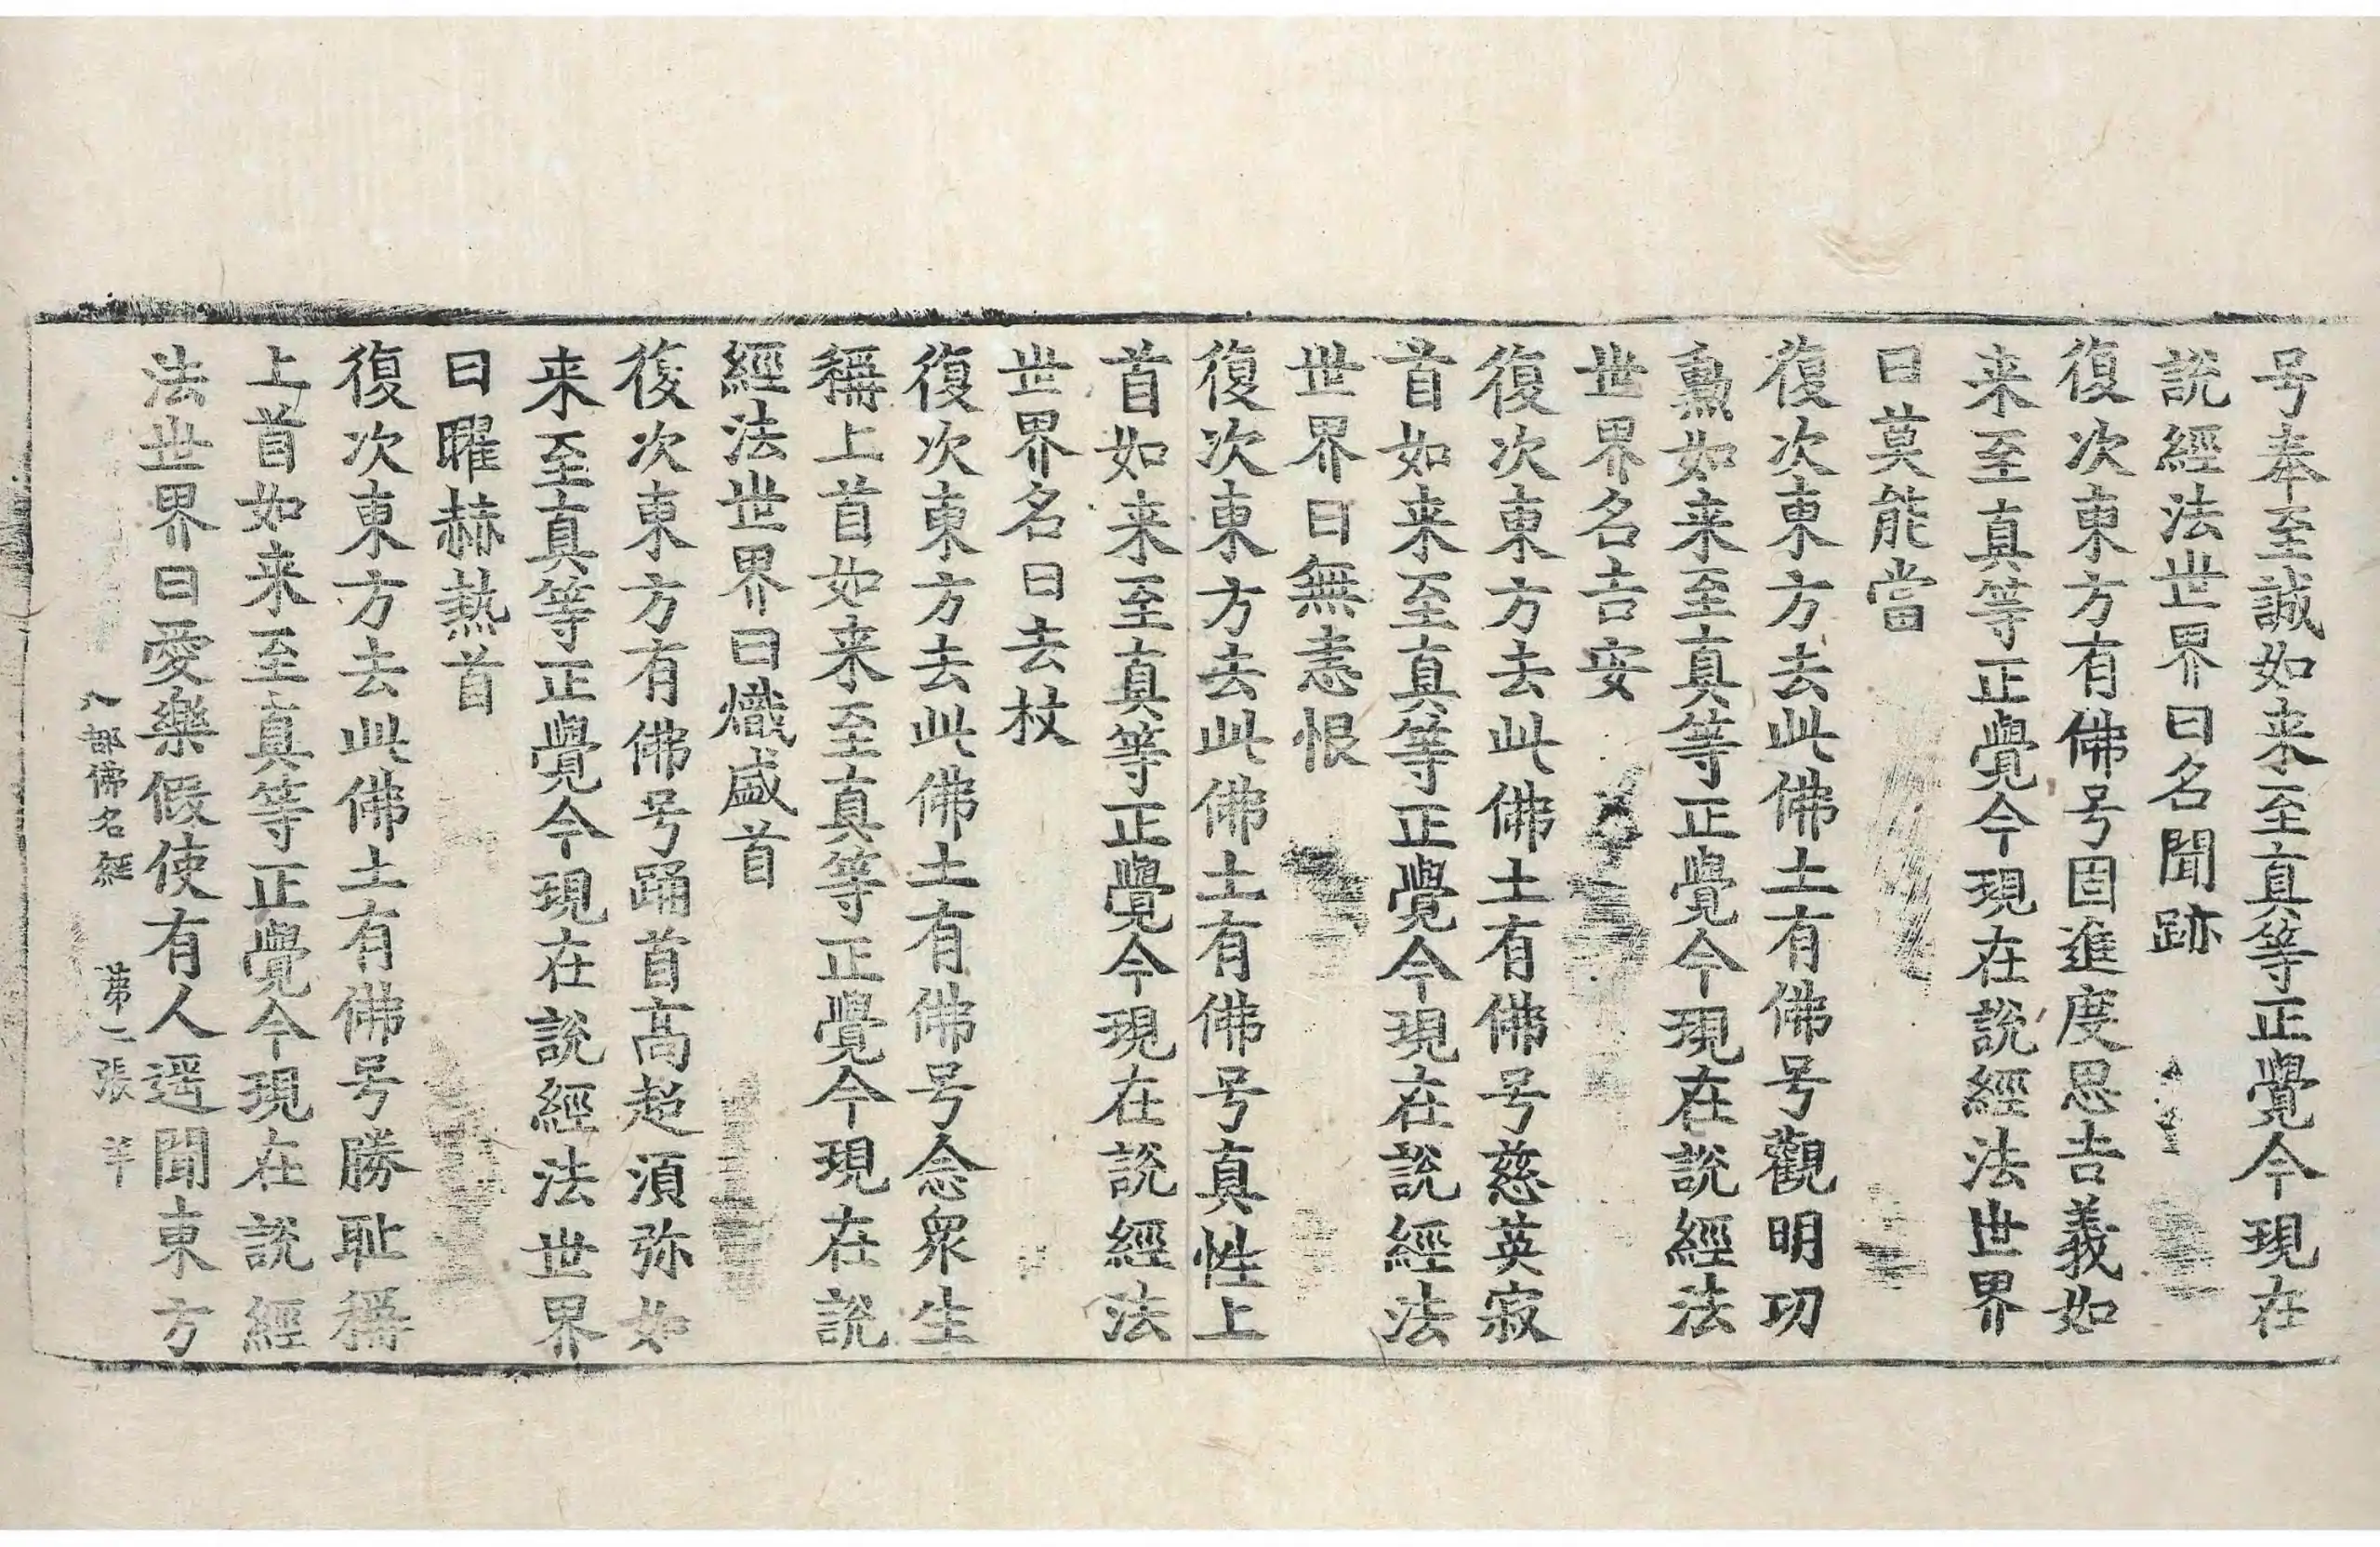 号奉至誠如来至真等正覺今現在
說經法世界曰名聞跡
復次東方有佛号固進度思吉義如
来至真等正覺今現在說經法世界
曰莫能當
復次東方去此佛土有佛号觀明功
勲如来至真等正覺今現在說經法
世界名吉安
復次東方去此佛土有佛号慈英寂
首如来至真等正覺今現在說經法
世界曰無恚恨
復次東方去此佛土有佛号真性上
首如来至真等正覺今現在說經法
世界名曰去杖
復次東方去此佛土有佛号念衆生
稱上首如来至真等正覺今現在說
經法世界曰熾盛首
復次東方有佛号踊首高超湏弥如
来至真等正覺今現在說經法世界
曰曜赫熱首
復次東方去此佛土有佛号勝耻稱
上首如来至真等正覺今現在說經
法世界曰愛樂假使有人遥聞東方
八部佛名経 第二張 羊